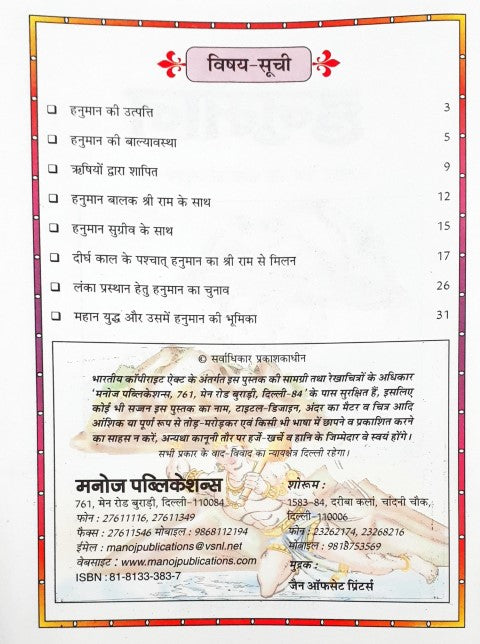 विषय-सूची
❑ हनुमान की उत्पत्ति 3
❑ हनुमान की बाल्यावस्था 5
❑ ऋषियों द्वारा शापित 9
❑ हनुमान बालक श्री राम के साथ 12
❑ हनुमान सुग्रीव के साथ 15
❑ दीर्घ काल के पश्चात् हनुमान का श्री राम से मिलन 17
❑ लंका प्रस्थान हेतु हनुमान का चुनाव 26
❑ महान युद्ध और उसमें हनुमान की भूमिका 31
© सर्वाधिकार प्रकाशकाधीन
भारतीय कॉपीराइट ऐक्ट के अंतर्गत इस पुस्तक की सामग्री तथा रेखाचित्रों के अधिकार
'मनोज पब्लिकेशन्स, 761, मेन रोड बुराड़ी, दिल्ली-84' के पास सुरक्षित हैं, इसलिए
कोई भी सज्जन इस पुस्तक का नाम, टाइटल-डिजाइन, अंदर का मैटर व चित्र आदि
आंशिक या पूर्ण रूप से तोड़-मरोड़कर एवं किसी भी भाषा में छापने व प्रकाशित करने
का साहस न करें, अन्यथा कानूनी तौर पर हर्जे-खर्चे व हानि के जिम्मेदार वे स्वयं होंगे।
सभी प्रकार के वाद-विवाद का न्यायक्षेत्र दिल्ली रहेगा।
मनोज पब्लिकेशन्स
761, मेन रोड बुराड़ी, दिल्ली-110084
फोन : 27611116, 27611349
फैक्स : 27611546 मोबाइल : 9868112194
ईमेल : manojpublications@vsnl.net
वेबसाइट : www.manojpublications.com
ISBN : 81-8133-383-7
शोरूम :
1583-84, दरीबा कलां, चांदनी चौक,
दिल्ली-110006
फोन : 23262174, 23268216
मोबाइल : 9818753569
मुद्रक :
जैन ऑफसेट प्रिंटर्स